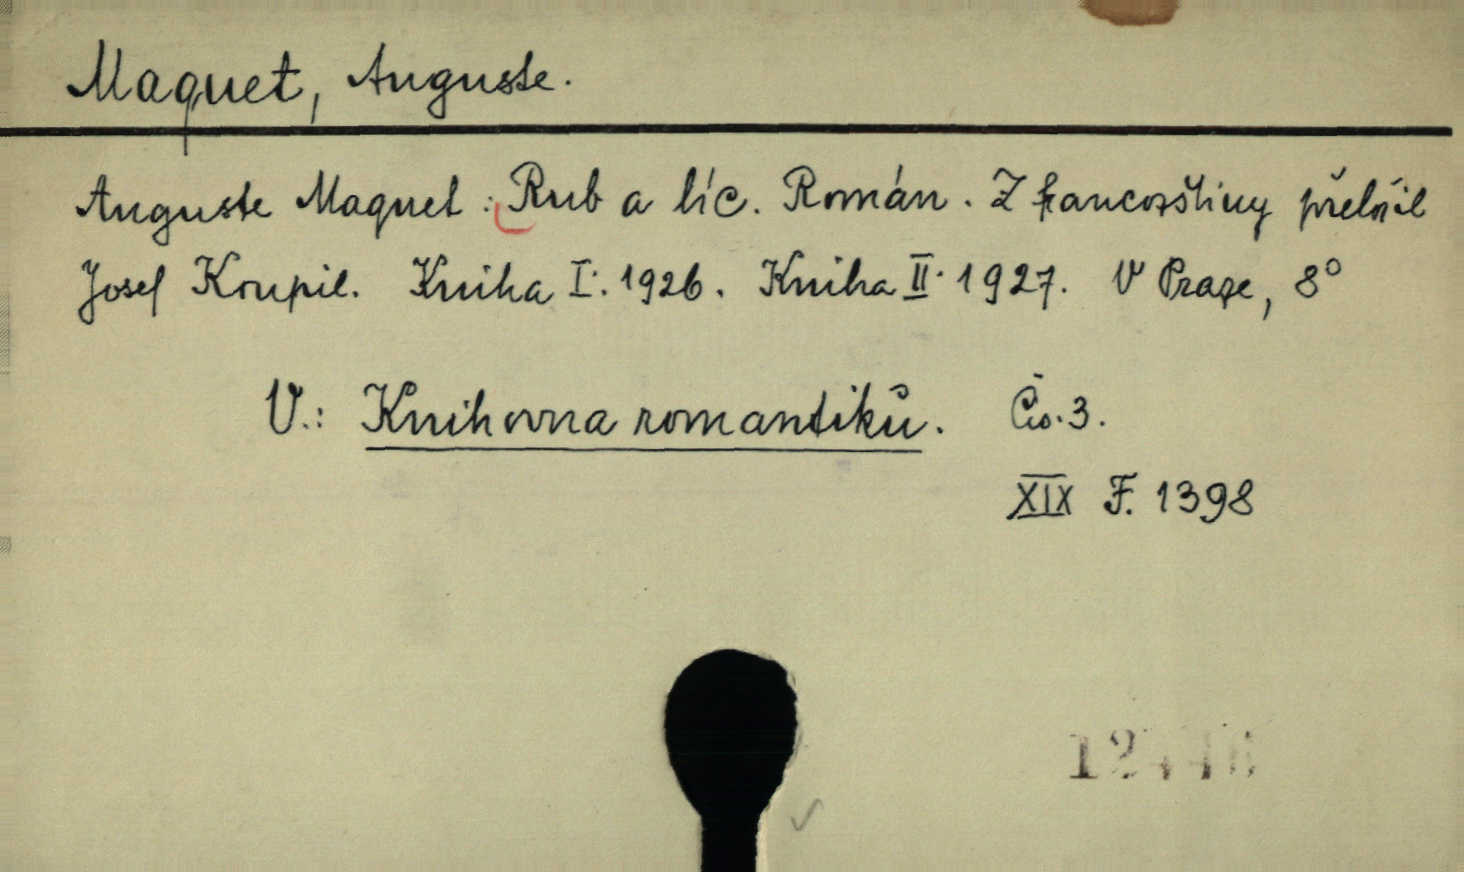 Maquet, Auguste.
Auguste Maquet: Rub a líc. Román. Z francozštiny přeložil
Josef Koupil. Kniha I. 1926. Kniha II. 1927. V Praze, 8°
V.: Knihovna romantiků. Čís. 3.
XIX F. 1398